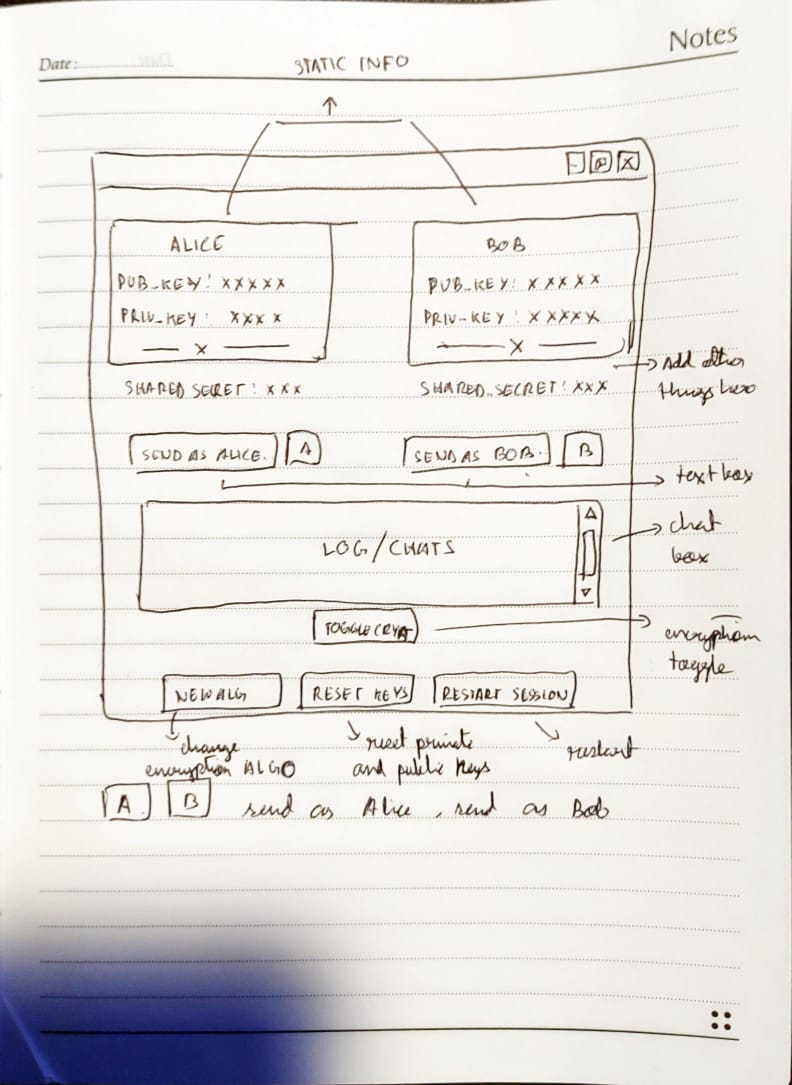 Notes
Date:
STATIC INFO
ALICE
PUB_KEY: XXXXX
PRIV_KEY: XXXX
X
BOB
PUB_KEY: XXXXX
PRIV_KEY: XXXXX
X
SHARED SECRET: XXX
SHARED_SECRET: XXX
Add other
things here
SEND AS ALICE.
A
SEND AS BOB.
B
text box
LOG/CHATS
chat
box
TOGGLE CRYA
encryption
toggle
NEW ALG
RESET KEYS
RESTART SESSION
change
encryption ALGO
reset private
and public keys
restart
A B send as Alice, send as Bob